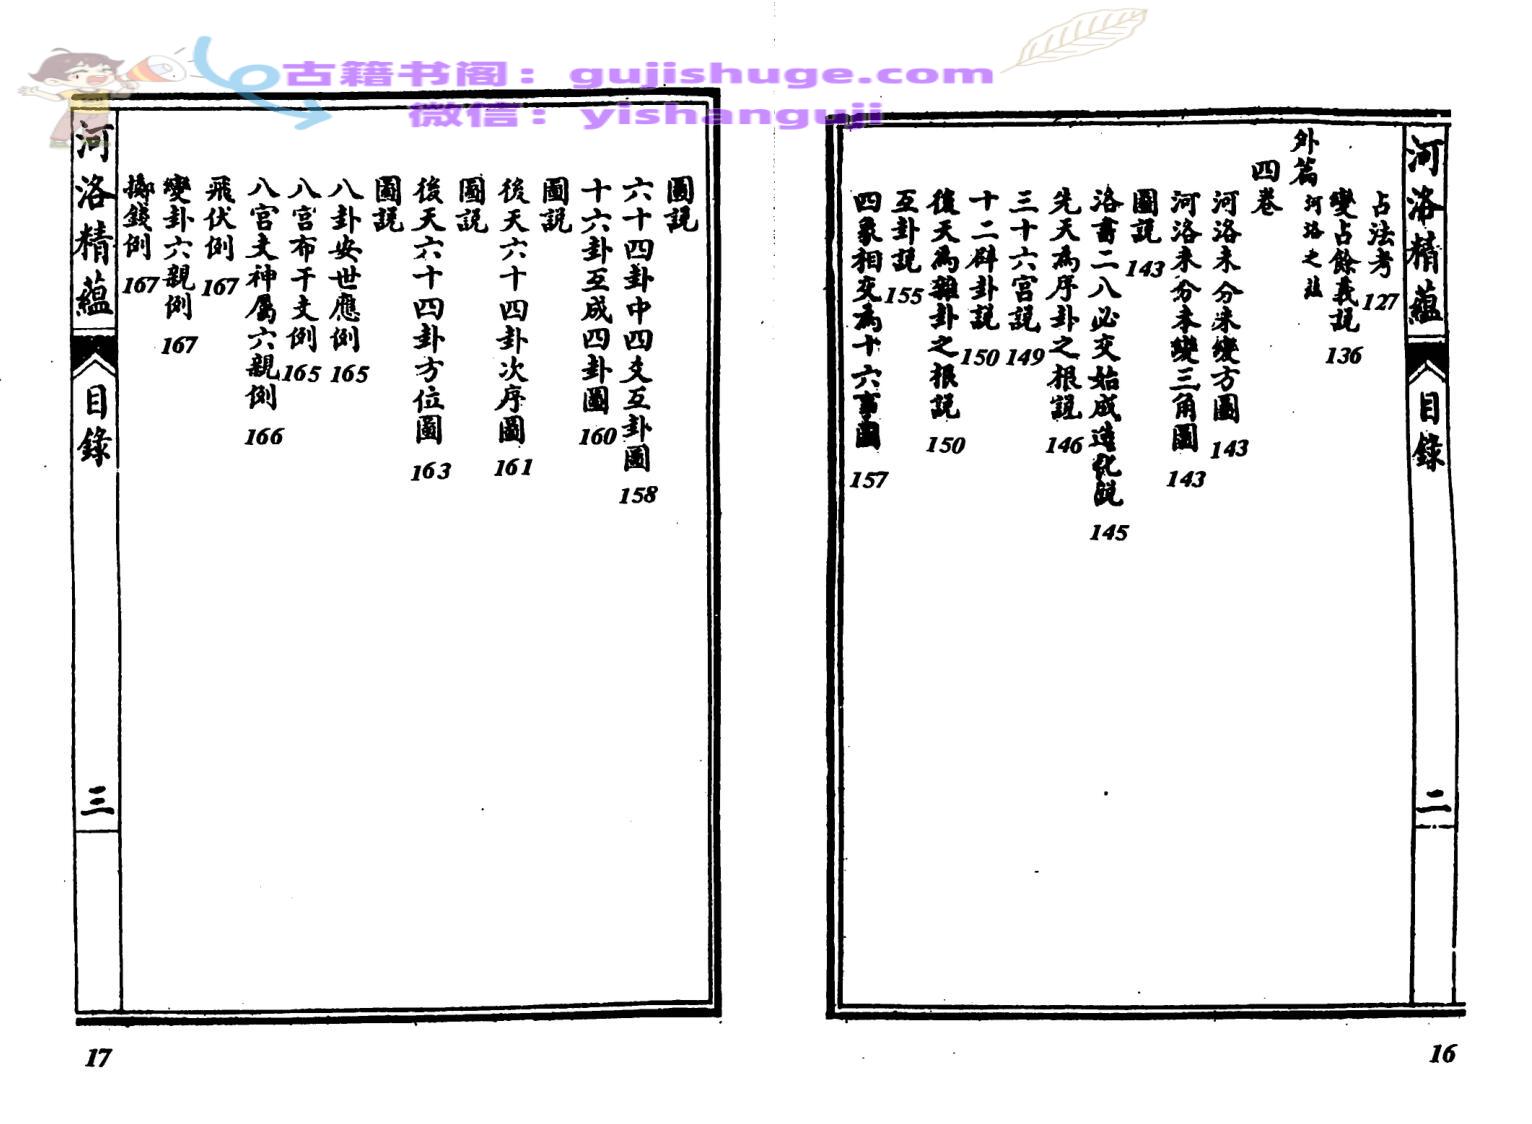 古籍书阁：gujishuge.com
微信：yishanguji
河洛精蘊
目錄
二
占法考 127
變占餘義說 136
外篇 河洛之
四卷
河洛未分未變方圖 143
河洛未分未變三角圖 143
圖說 143
洛書二八必交始成造化說 145
先天為序卦之根說 146
三十六宮說 149
十二辟卦說 150
後天為雜卦之根說 150
互卦說 155
四象相交為十六事圖 157
16
圖說
六十四卦中四爻互卦圖 158
十六卦互成四卦圖 160
圖說
後天六十四卦次序圖 161
圖說
後天六十四卦方位圖 163
圖說
八卦安世應例 165
八宮布干支例 165
八宮支神屬六親例 166
飛伏例 167
變卦六親例 167
擲錢例 167
河洛精蘊
目錄
三
17